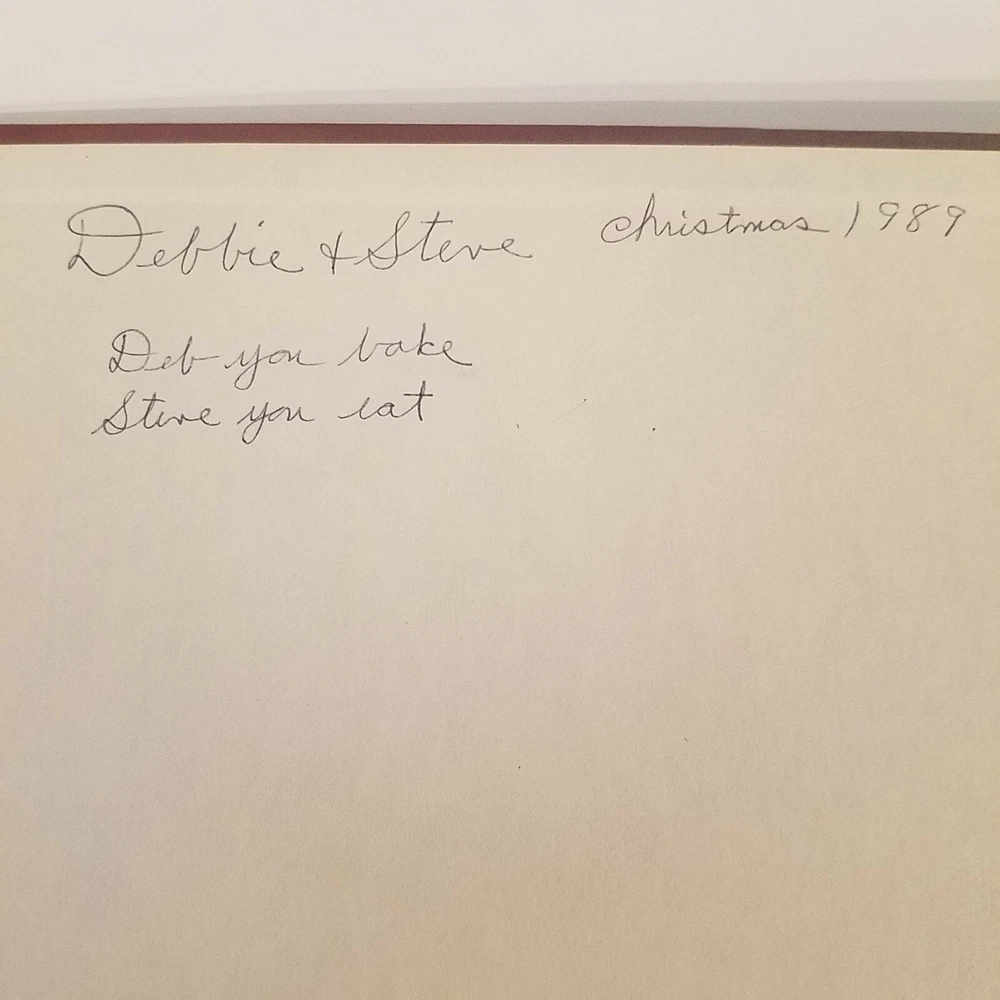 Debbie & Steve Christmas 1989
Deb you bake
Steve you eat